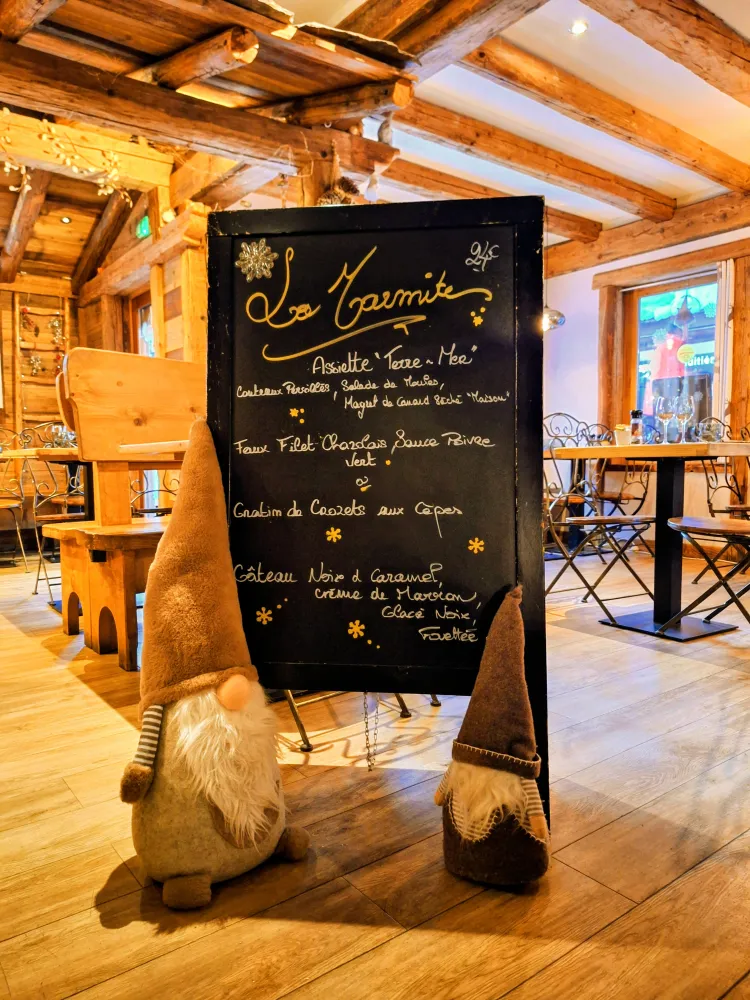 24€
La Marmite
Assiette "Terre - Mer"
Couteaux Persillés, Salade de Moules,
Magret de Canard Séché "Maison"
Faux Filet Charolais Sauce Poivre
Vert
Gratin de Crozets aux Cèpes
Gâteau Noix & Caramel,
crème de Marron,
Glace Noix,
Fouettée